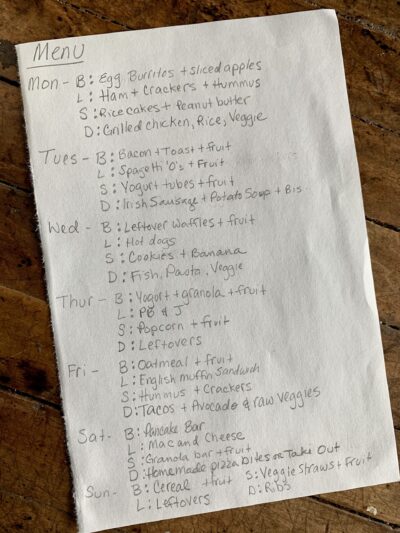 Menu
Mon - B: Egg Burritos + sliced apples
L: Ham + Crackers + Hummus
S: Rice cakes + Peanut butter
D: Grilled chicken, Rice, Veggie
Tues - B: Bacon + Toast + fruit
L: Spagetti 'O's + Fruit
S: Yogurt tubes + fruit
D: Irish Sausage + Potato Soup + Bis.
Wed - B: Leftover Waffles + fruit
L: Hot dogs
S: Cookies + Banana
D: Fish, Pasta, Veggie
Thur - B: Yogurt + granola + fruit
L: PB & J
S: Popcorn + fruit
D: Leftovers
Fri - B: Oatmeal + fruit
L: English muffin Sandwich
S: Hummus + Crackers
D: Tacos + Avocado & raw veggies
Sat - B: Pancake Bar
L: Mac and Cheese
S: Granola bar + fruit
D: Homemade pizza bites or Take Out
Sun - B: Cereal + fruit S: Veggie Straws + Fruit
L: Leftovers D: Ribs